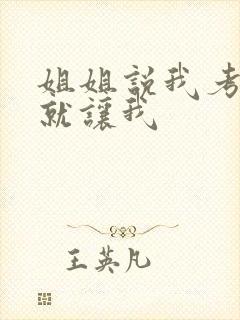 姐姐説我考
就讓我
王英凡